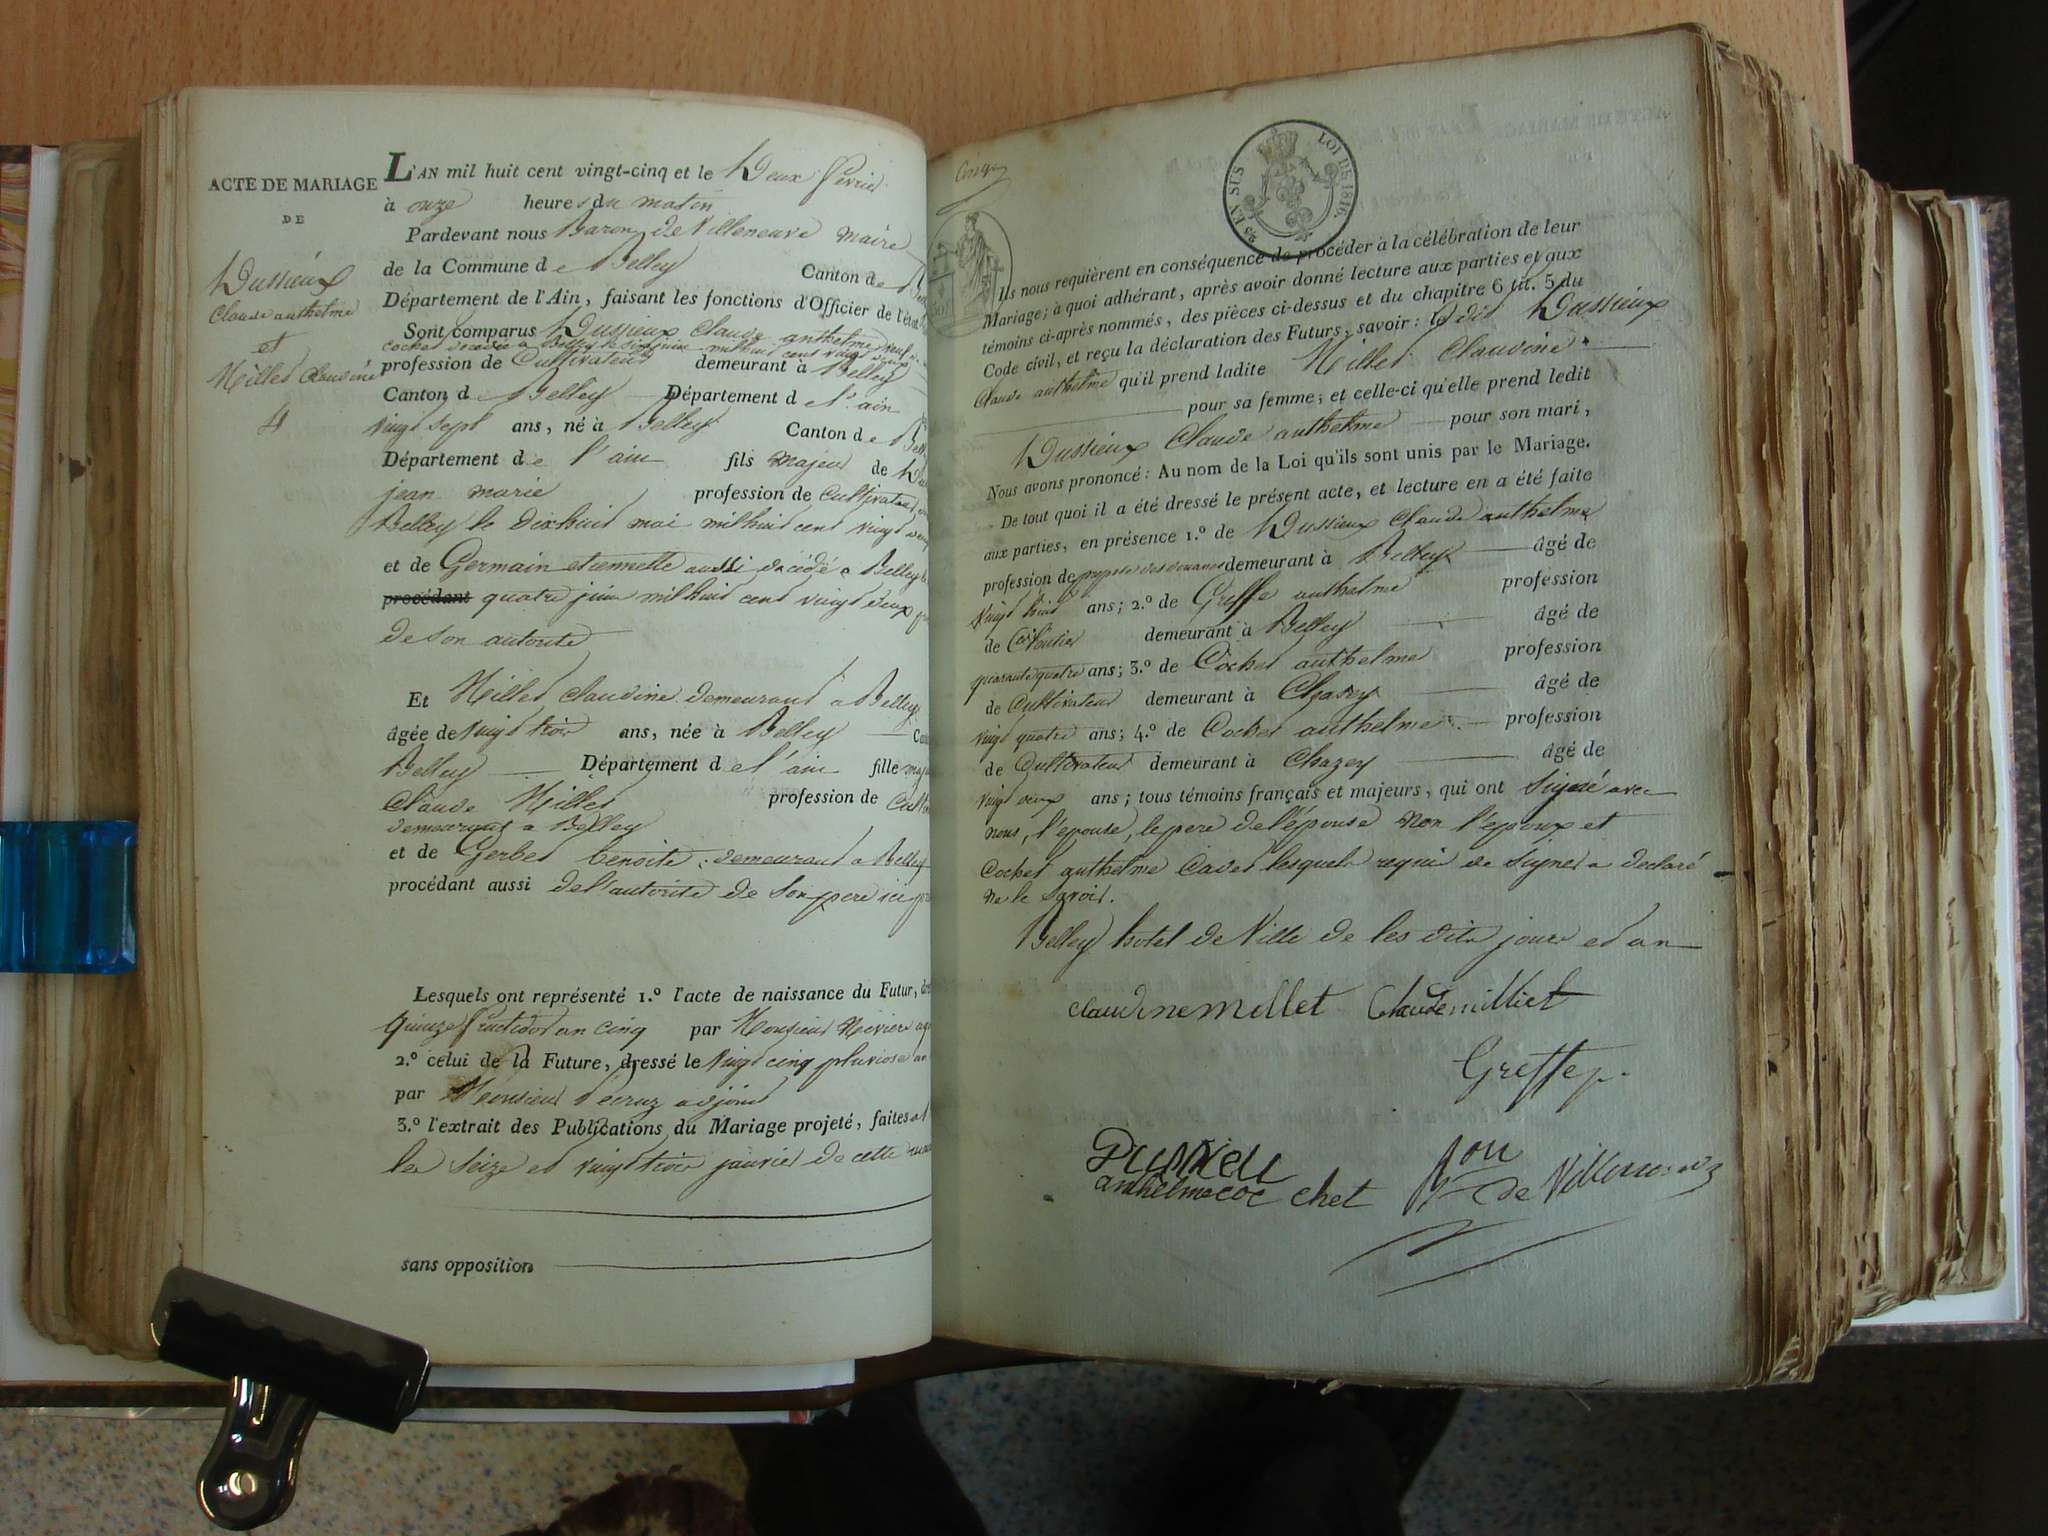 ACTE DE MARIAGE
DE
Dussieux
Claude anthelme
et
Millet Claudine
4
L'AN mil huit cent vingt-cinq et le Deux fevrier
à onze heures du matin
Pardevant nous Baron de Villeneuve maire
de la Commune de Belley Canton de
Département de l'Ain, faisant les fonctions d'Officier de l'état
Sont comparus Dussieux Claude anthelme veuf
cochet décédée à Belley le mil huit cent vingt
profession de Cultivateur demeurant à Belley
Canton de Belley Département de l'ain
vingt sept ans, né à Belley Canton de Bell
Département de l'ain fils majeur de
jean marie profession de Cultivateur
Belley le dixhuit mai mil huit cent vingt
et de Germain etiennette aussi décédé a Belley le
procédant quatre juin mil huit cent vingt deux
de son autorité
Et Millet claudine demeurant à Belley
âgée de vingt trois ans, née à Belley
Belley Département de l'ain fille
Claude Millet profession de
demeurant a Belley
et de Gerbet benoite demeurant a Belley
procédant aussi de l'autorité de son pere ici
Lesquels ont représenté 1.º l'acte de naissance du Futur,
Quinze fructidor an cinq par Monsieur
2.º celui de la Future, dressé le vingt cinq pluviose an
par Monsieur adjoint
3.º l'extrait des Publications du Mariage projeté, faites
les seize et vingt trois janvier de cette
sans opposition
LOI DE 1816.
EN SUS
Ils nous requièrent en conséquence de procéder à la célébration de leur
Mariage; à quoi adhérant, après avoir donné lecture aux parties et aux
témoins ci-après nommés, des pièces ci-dessus et du chapitre 6 tit. 5 du
Code civil, et reçu la déclaration des Futurs, savoir: le dit Dussieux
Claude anthelme qu'il prend ladite Millet Claudine
pour sa femme; et celle-ci qu'elle prend ledit
Dussieux Claude anthelme pour son mari,
Nous avons prononcé: Au nom de la Loi qu'ils sont unis par le Mariage.
De tout quoi il a été dressé le présent acte, et lecture en a été faite
aux parties, en présence 1.º de Dussieux Claude anthelme
profession de preposé des douanes demeurant à Belley âgé de
vingt huit ans; 2.º de Greffe anthelme profession
de Cloutier demeurant à Belley âgé de
quarante quatre ans; 3.º de Cochet anthelme profession
de Cultivateur demeurant à Chazey âgé de
vingt quatre ans; 4.º de Cochet anthelme profession
de Cultivateur demeurant à Chazey âgé de
vingt deux ans; tous témoins français et majeurs, qui ont signé avec
nous, l'epouse, le pere de l'épouse non l'epoux et
Cochet anthelme Cadet lesquels requis de signer a declaré
ne le savoir.
Belley hotel de Ville de les dits jour et an
claudinemillet Claudemilliet
Greffe
Dussieu
anthelmecoc chet Bon de Villeneuve